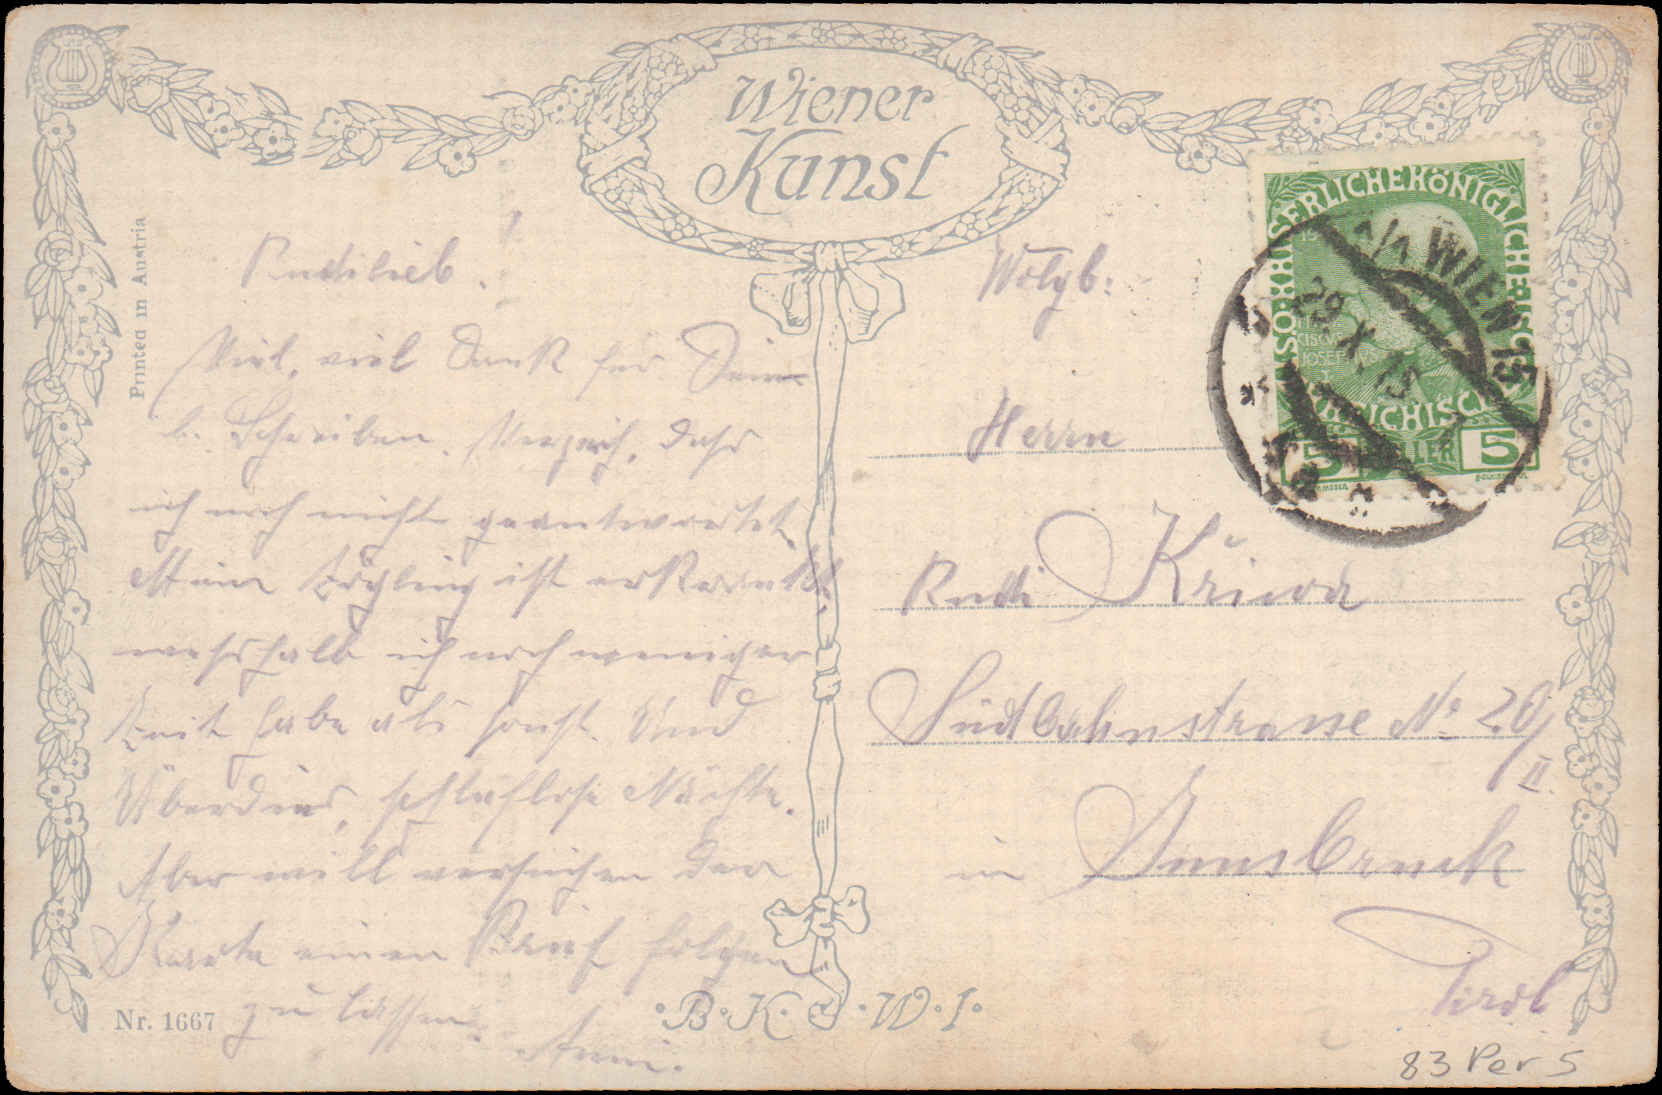 Wiener
Kunst
Printed in Austria
Rudilieb!
Viel, viel Dank für Dein
l. Schreiben. Verzeih, dass
ich noch nicht geantwortet.
Mein Zögling ist erkrankt,
weshalb ich noch weniger
Zeit habe als sonst. Und
Überdies, schlaflose Nächte.
Aber will versuchen der
Karte einen Brief folgen
zu lassen. Anni.
Nr. 1667
B. K. W. I.
Wolgb:
Herrn
Rudi Křiwa
Südbahnstrasse No 20/
II.
in Innsbruck
Tirol
KAISERLICHE KÖNIGLICHE
5 HELLER 5
1/1 WIEN 15
29 X 13
83 Per 5